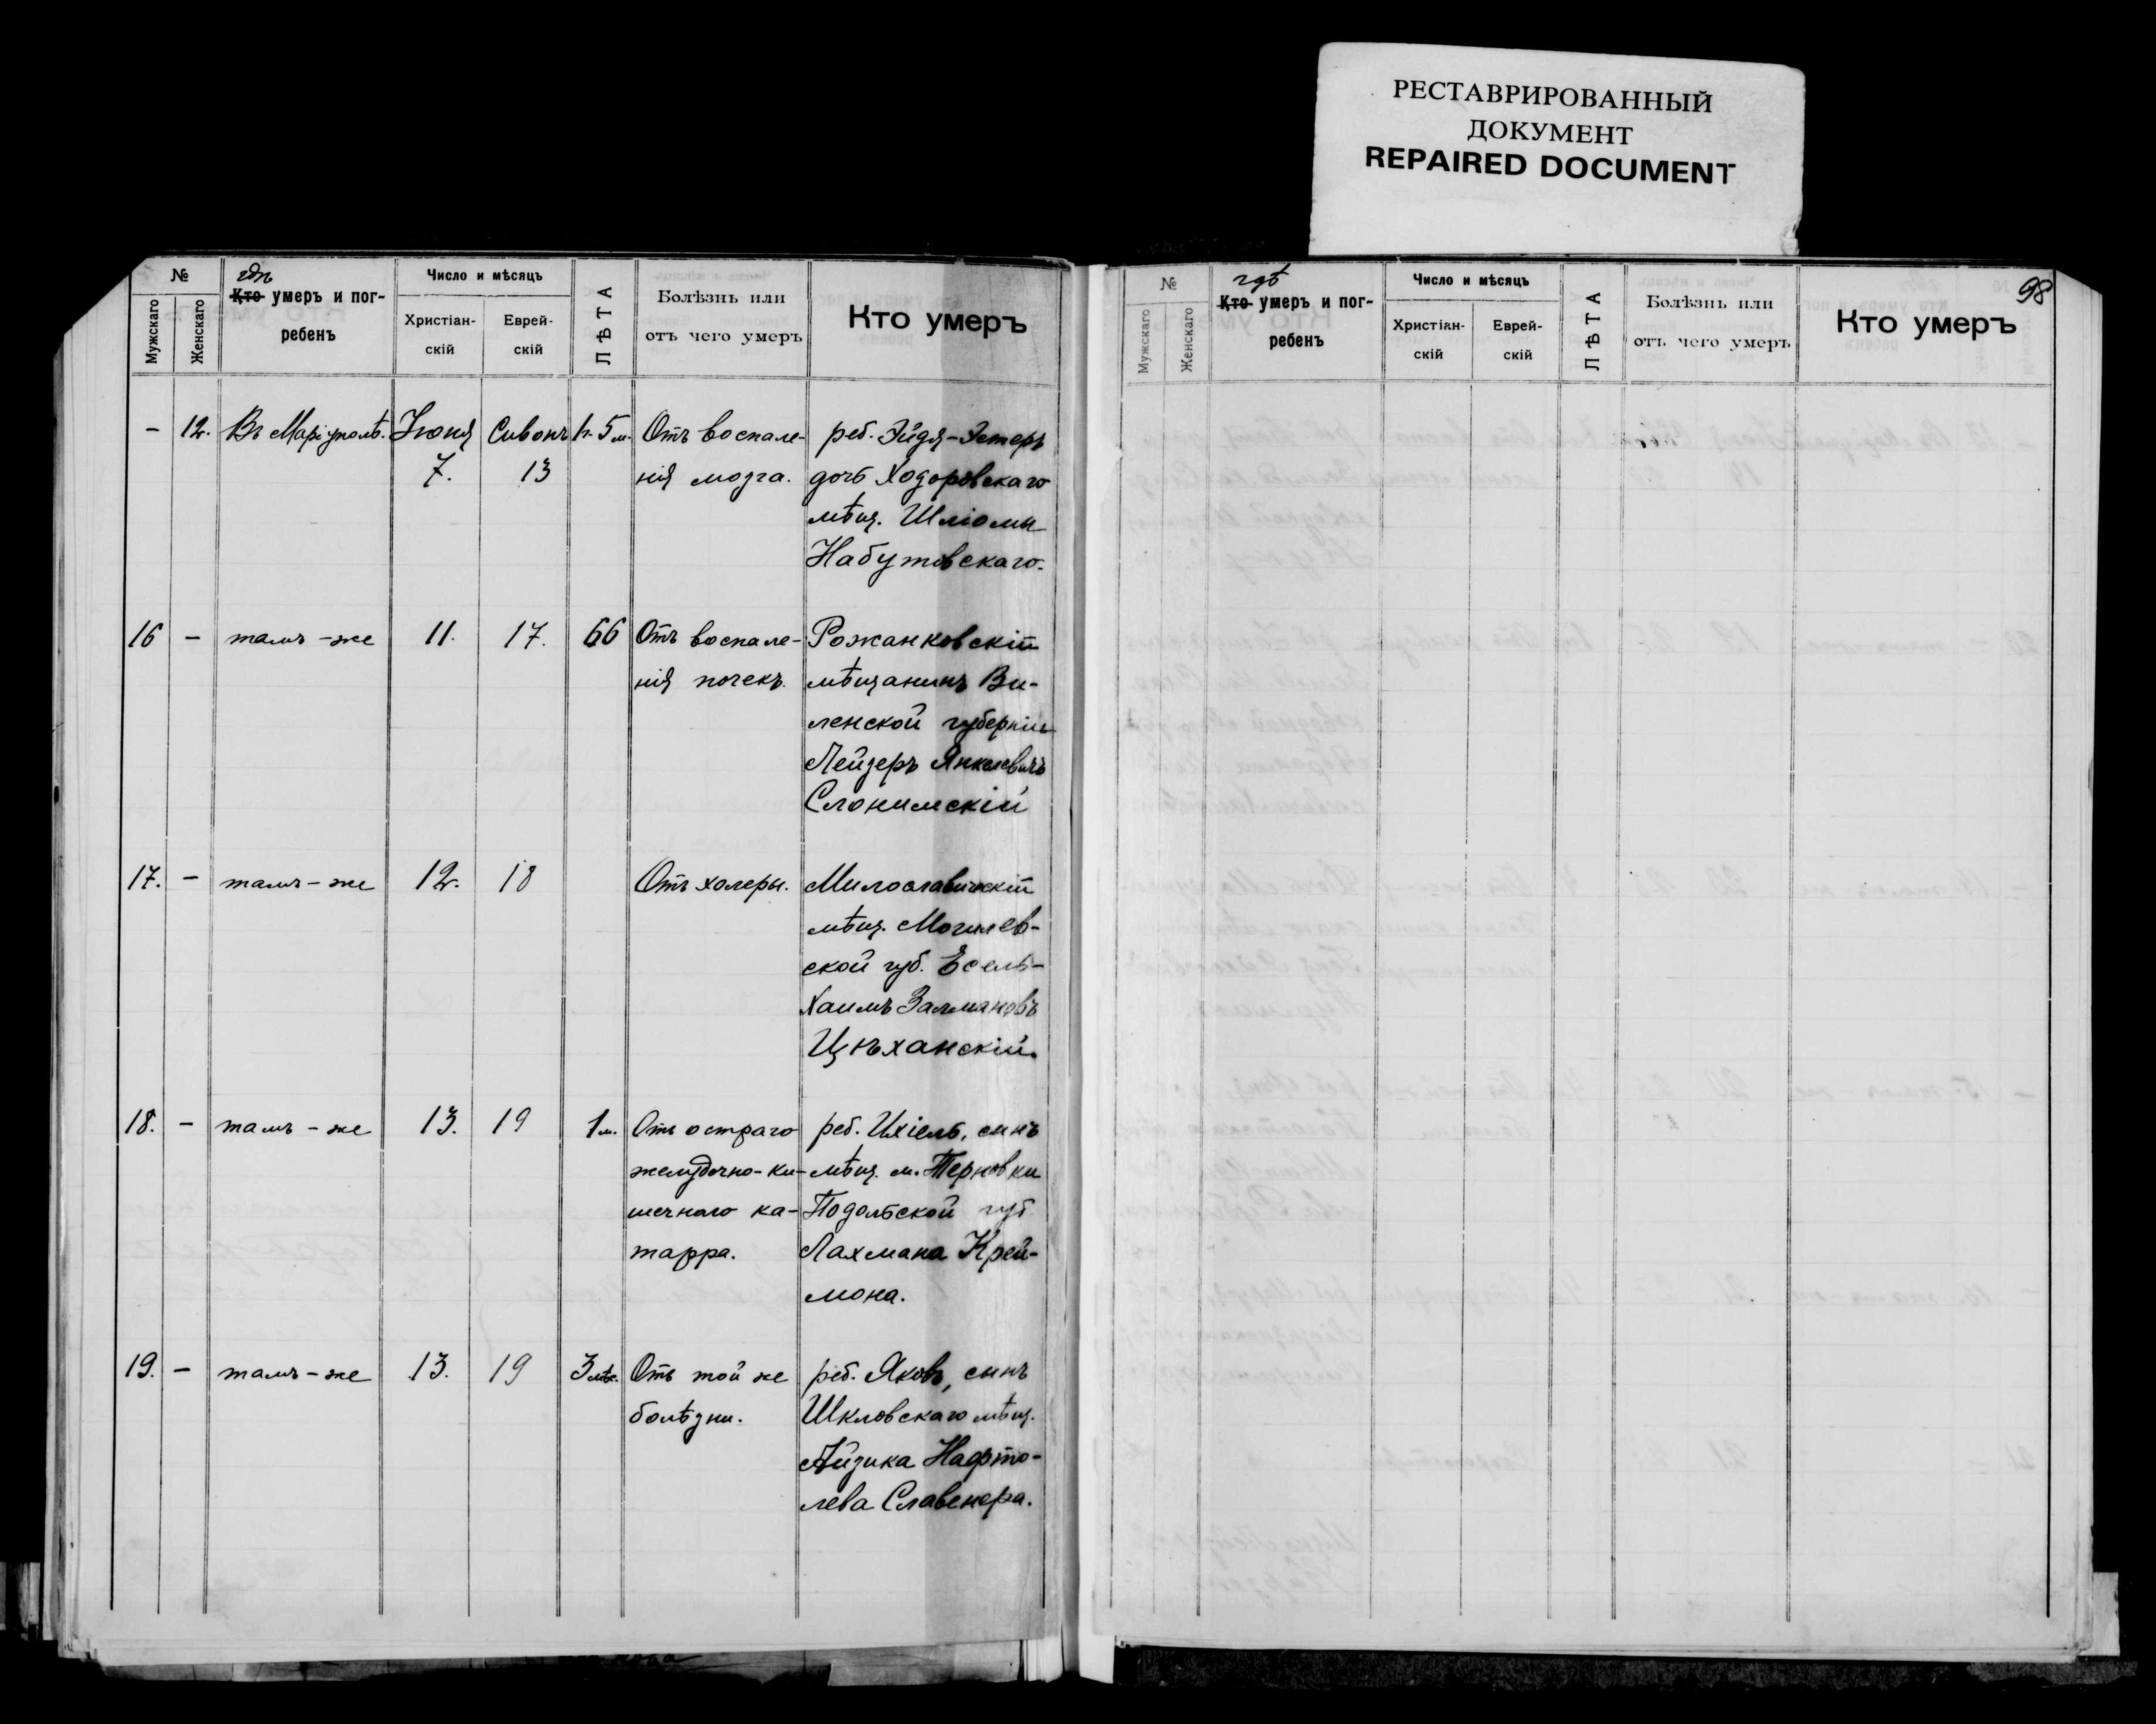 РЕСТАВРИРОВАННЫЙ
ДОКУМЕНТ
REPAIRED DOCUMENT
№
Мужскаго
Женскаго
гдѣ
Кто умеръ и пог-
ребенъ
Число и мѣсяцъ
Христіан-
скій
Еврей-
скій
ЛѢТА
Болѣзнь или
отъ чего умеръ
Кто умеръ
– 12. Въ Маріуполѣ. Іюня Сивонъ 1г. 5 м. Отъ воспале- реб. Эйдя-Эстеръ
7. 13 нія мозга. дочь Ходоровскаго
мѣщ. Шліомы
Набутовскаго.
16 – тамъ-же 11. 17. 66 Отъ воспале- Рожанковскій
нія почекъ. мѣщанинъ Ви-
ленской губерніи
Лейзеръ Янкелевичъ
Слонимскій
17. – тамъ-же 12. 18 Отъ холеры. Милославичскій
мѣщ. Могилев-
ской губ. Есель-
Хаимъ Залмановъ
Цѣханскій.
18. – тамъ-же 13. 19 1 м. Отъ остраго реб. Ихіель, сынъ
желудочно-ки- мѣщ. м. Терновки
шечнаго ка- Подольской губ
тарра. Лахмана Крей-
мона.
19. – тамъ-же 13. 19 3 мѣс. Отъ той же реб. Яковъ, сынъ
болѣзни. Шкловскаго мѣщ.
Айзика Нафто-
лева Славенера.
98
№
Мужскаго
Женскаго
гдѣ
Кто умеръ и пог-
ребенъ
Число и мѣсяцъ
Христіан-
скій
Еврей-
скій
ЛѢТА
Болѣзнь или
отъ чего умеръ
Кто умеръ